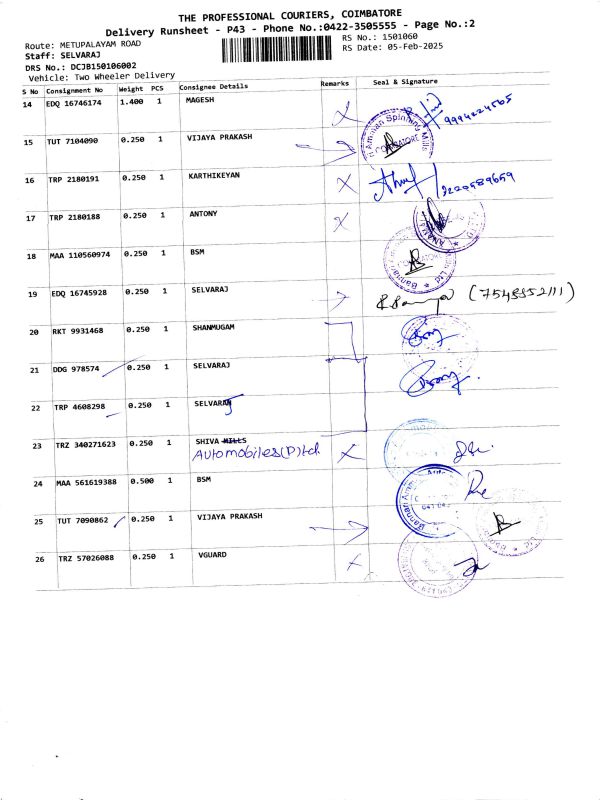 THE PROFESSIONAL COURIERS, COIMBATORE
Delivery Runsheet - P43 - Phone No.:0422-3505555 - Page No.:2
Route: METUPALAYAM ROAD RS No.: 1501060
Staff: SELVARAJ RS Date: 05-Feb-2025
DRS No.: DCJB150106002
Vehicle: Two Wheeler Delivery
S No Consignment No Weight PCS Consignee Details Remarks Seal & Signature
14 EDQ 16746174 1.400 1 MAGESH X
15 TUT 7104090 0.250 1 VIJAYA PRAKASH Amman Spinning Mills COIMBATORE
16 TRP 2180191 0.250 1 KARTHIKEYAN X
17 TRP 2180188 0.250 1 ANTONY X
18 MAA 110560974 0.250 1 BSM
19 EDQ 16745928 0.250 1 SELVARAJ
20 RKT 9931468 0.250 1 SHANMUGAM
21 DDG 978574 0.250 1 SELVARAJ
22 TRP 4608298 0.250 1 SELVARAJ
23 TRZ 340271623 0.250 1 SHIVA MILLS X
Automobiles(P)Ltd
24 MAA 561619388 0.500 1 BSM
25 TUT 7090862 0.250 1 VIJAYA PRAKASH
26 TRZ 57026088 0.250 1 VGUARD X